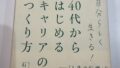 自分らしく
生きる!
40代から
はじめる
キャリアの
つくり方